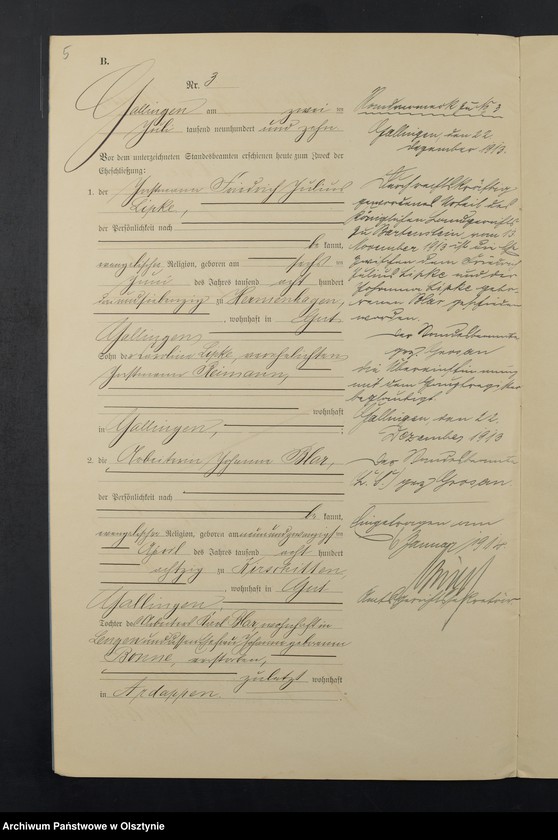 5
B.
Nr. 3
Gallingen am zwei ten
Juli tausend neunhundert und zehn
Vor dem unterzeichneten Standesbeamten erschienen heute zum Zweck der
Eheschließung:
1. der Instmann Friedrich Julius
Lipke,
der Persönlichkeit nach
be kannt,
evangelischer Religion, geboren am sechs ten
Juni des Jahres tausend acht hundert
dreiundsiebenzig zu Hermenhagen,
, wohnhaft in Gut
Gallingen
Sohn der Karoline Lipke, verehelichten
Instmann Reimann,
wohnhaft
in Gallingen,
2. die Arbeiterin Johanna Blar,
der Persönlichkeit nach
be kannt,
evangelischer Religion, geboren am neunundzwanzigsten
April des Jahres tausend acht hundert
achtzig zu Kerschitten,
, wohnhaft in Gut
Gallingen,
Tochter des Arbeiters Karl Blar, wohnhaft in
Longen und dessen Ehefrau Johanna geborenen
Bonne, verstorben,
zuletzt wohnhaft
in Ardappen.
Gallingen den 22.
Dezember 1913.
Durch rechtskräftig
gewordenes Urteil des
Königlichen Landgerichts
zu Bartenstein vom 13
November 1913 ist die Ehe
zwischen dem Friedrich
Julius Lipke und der
Johanna Lipke gebo-
renen Blar geschieden
worden.
Der Standesbeamte
gez. Grosan
die Übereinstimmung
mit dem Hauptregister
beglaubigt
Gallingen, den 22.
Dezember 1913
Der Standesbeamte
(L.S.) gez. Grosan
Eingetragen am
6 Januar 1914.
Amtsgerichtssekretär
Archiwum Państwowe w Olsztynie